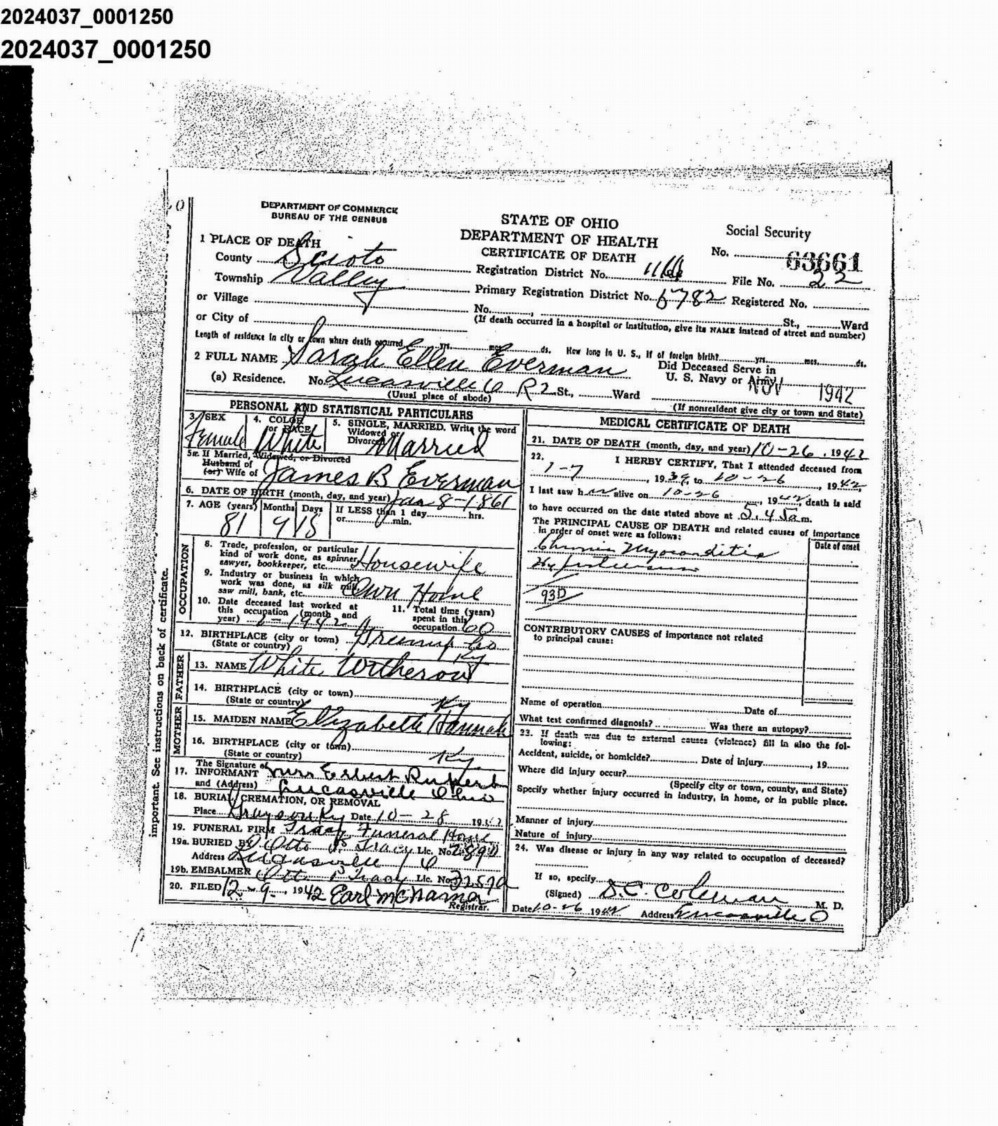 2024037_0001250
2024037_0001250
DEPARTMENT OF COMMERCE
BUREAU OF THE CENSUS
STATE OF OHIO
DEPARTMENT OF HEALTH
CERTIFICATE OF DEATH
Social Security
No.
63661
1 PLACE OF DEATH
County Scioto
Registration District No. 1166
File No. 22
Township Valley
Primary Registration District No. 6782 Registered No.
or Village
No. St., Ward
or City of
(If death occurred in a hospital or institution, give its NAME instead of street and number)
Length of residence in city or town where death occurred yrs. mos. ds. How long in U. S., if of foreign birth? yrs. mos. ds.
2 FULL NAME Sarah Ellen Everman
Did Deceased Serve in
U. S. Navy or Army
NOV 1942
(a) Residence. No. Lucasville O R 2 St., Ward
(Usual place of abode)
(If nonresident give city or town and State)
PERSONAL AND STATISTICAL PARTICULARS
3. SEX
Female
4. COLOR or RACE
White
5. SINGLE, MARRIED, Write the word
Widowed or
Divorced Married
5a. If Married, Widowed, or Divorced
Husband of
(or) Wife of James B Everman
6. DATE OF BIRTH (month, day, and year) Jan 8-1861
7. AGE (years) Months Days If LESS than 1 day hrs.
or min.
81 9 18
OCCUPATION
8. Trade, profession, or particular
kind of work done, as spinner,
sawyer, bookkeeper, etc. Housewife
9. Industry or business in which
work was done, as silk mill,
saw mill, bank, etc. Own Home
10. Date deceased last worked at
this occupation (month and
year) 1942
11. Total time (years)
spent in this
occupation 60
12. BIRTHPLACE (city or town) Greenup Co
(State or country) Ky
FATHER
13. NAME White Witherow
14. BIRTHPLACE (city or town)
(State or country) Ky
MOTHER
15. MAIDEN NAME Elizabeth Hannah
16. BIRTHPLACE (city or town)
(State or country) Ky
17. The Signature of
INFORMANT Mrs Erbert
and (Address) Lucasville Ohio
18. BURIAL, CREMATION, OR REMOVAL
Place Grayson Ky Date 10-28 1942
19. FUNERAL FIRM Tracy Funeral Home
19a. BURIED BY Otto P. Tracy Lic. No.
Address Lucasville O
19b. EMBALMER Otto P Tracy Lic. No.
20. FILED 12-9, 1942 Earl McNamer
Registrar.
important. See instructions on back of certificate.
MEDICAL CERTIFICATE OF DEATH
21. DATE OF DEATH (month, day, and year) 10-26, 1942
22. I HERBY CERTIFY, That I attended deceased from
1-7, 1939 to 10-26, 1942,
I last saw her alive on 10-26, 1942, death is said
to have occurred on the date stated above at 5.45 a m.
The PRINCIPAL CAUSE OF DEATH and related causes of importance
in order of onset were as follows:
Date of onset
Chronic Myocarditis
93D
CONTRIBUTORY CAUSES of importance not related
to principal cause:
Name of operation Date of
What test confirmed diagnosis? Was there an autopsy?
23. If death was due to external causes (violence) fill in also the following:
Accident, suicide, or homicide? Date of injury, 19
Where did injury occur?
(Specify city or town, county, and State)
Specify whether injury occurred in industry, in home, or in public place.
Manner of injury
Nature of injury
24. Was disease or injury in any way related to occupation of deceased?
If so, specify
(Signed) S. C. Coleman M. D.
Date 10-26 1942 Address Lucasville O